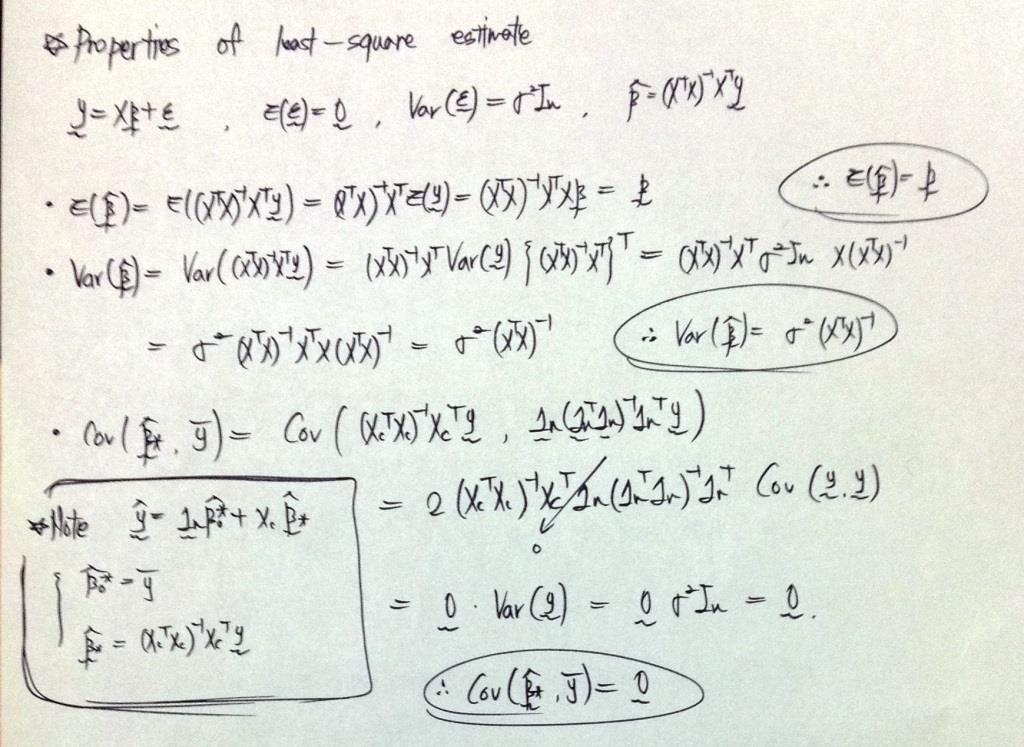 * Properties of least-square estimate
y = Xβ + ε , E(ε) = 0 , Var(ε) = σ²In , β̂ = (XᵀX)⁻¹Xᵀy
· E(β̂) = E((XᵀX)⁻¹Xᵀy) = (XᵀX)⁻¹XᵀE(y) = (XᵀX)⁻¹XᵀXβ = β ∴ E(β̂) = β
· Var(β̂) = Var((XᵀX)⁻¹Xᵀy) = (XᵀX)⁻¹Xᵀ Var(y) {(XᵀX)⁻¹Xᵀ}ᵀ = (XᵀX)⁻¹Xᵀ σ²In X(XᵀX)⁻¹
= σ² (XᵀX)⁻¹XᵀX(XᵀX)⁻¹ = σ² (XᵀX)⁻¹ ∴ Var(β̂) = σ² (XᵀX)⁻¹
· Cov(β̂*, ȳ) = Cov((XcᵀXc)⁻¹Xcᵀy , 1n(1nᵀ1n)⁻¹1nᵀy)
= 2 (XcᵀXc)⁻¹Xcᵀ1n(1nᵀ1n)⁻¹1nᵀ Cov(y, y)
0
= 0 · Var(y) = 0 σ²In = 0.
∴ Cov(β̂*, ȳ) = 0
* Note ŷ = 1nβ̂0* + Xc β̂*
β̂0* = ȳ
β̂* = (XcᵀXc)⁻¹Xcᵀy